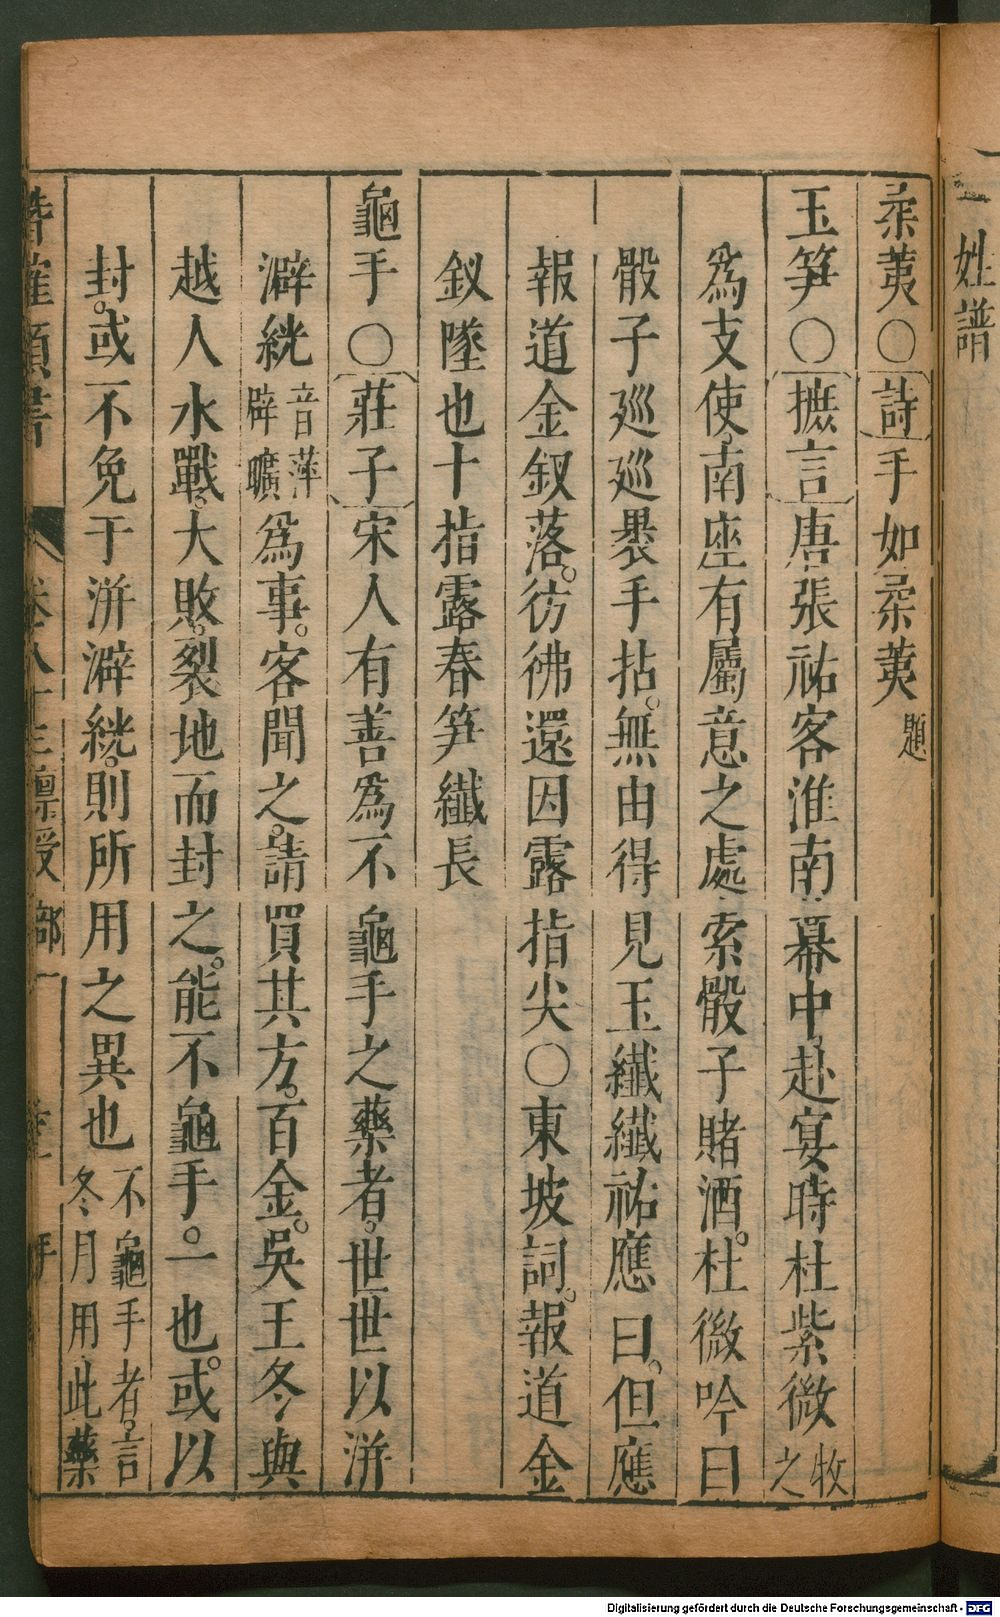 姓譜
柔荑○詩手如柔荑題
玉笋○摭言唐張祐客淮南幕中赴宴時杜紫微牧之
爲支使南座有屬意之處索骰子賭酒。杜微吟曰
骰子廵廵褁手拈。無由得見玉纖纖祐應曰。但應
報道金釵落。彷彿還因露指尖○東坡詞。報道金
釵墜也十指露春笋纖長
龜手○莊子宋人有善爲不龜手之藥者。世世以洴
澼絖音萍辟曠爲事。客聞之。請買其方。百金。吳王冬與
越人水戰。大敗。裂地而封之。能不龜手。一也。或以
封。或不免于洴澼絖。則所用之異也不龜手者。言冬月用此藥
Digitalisierung gefördert durch die Deutsche Forschungsgemeinschaft - DFG